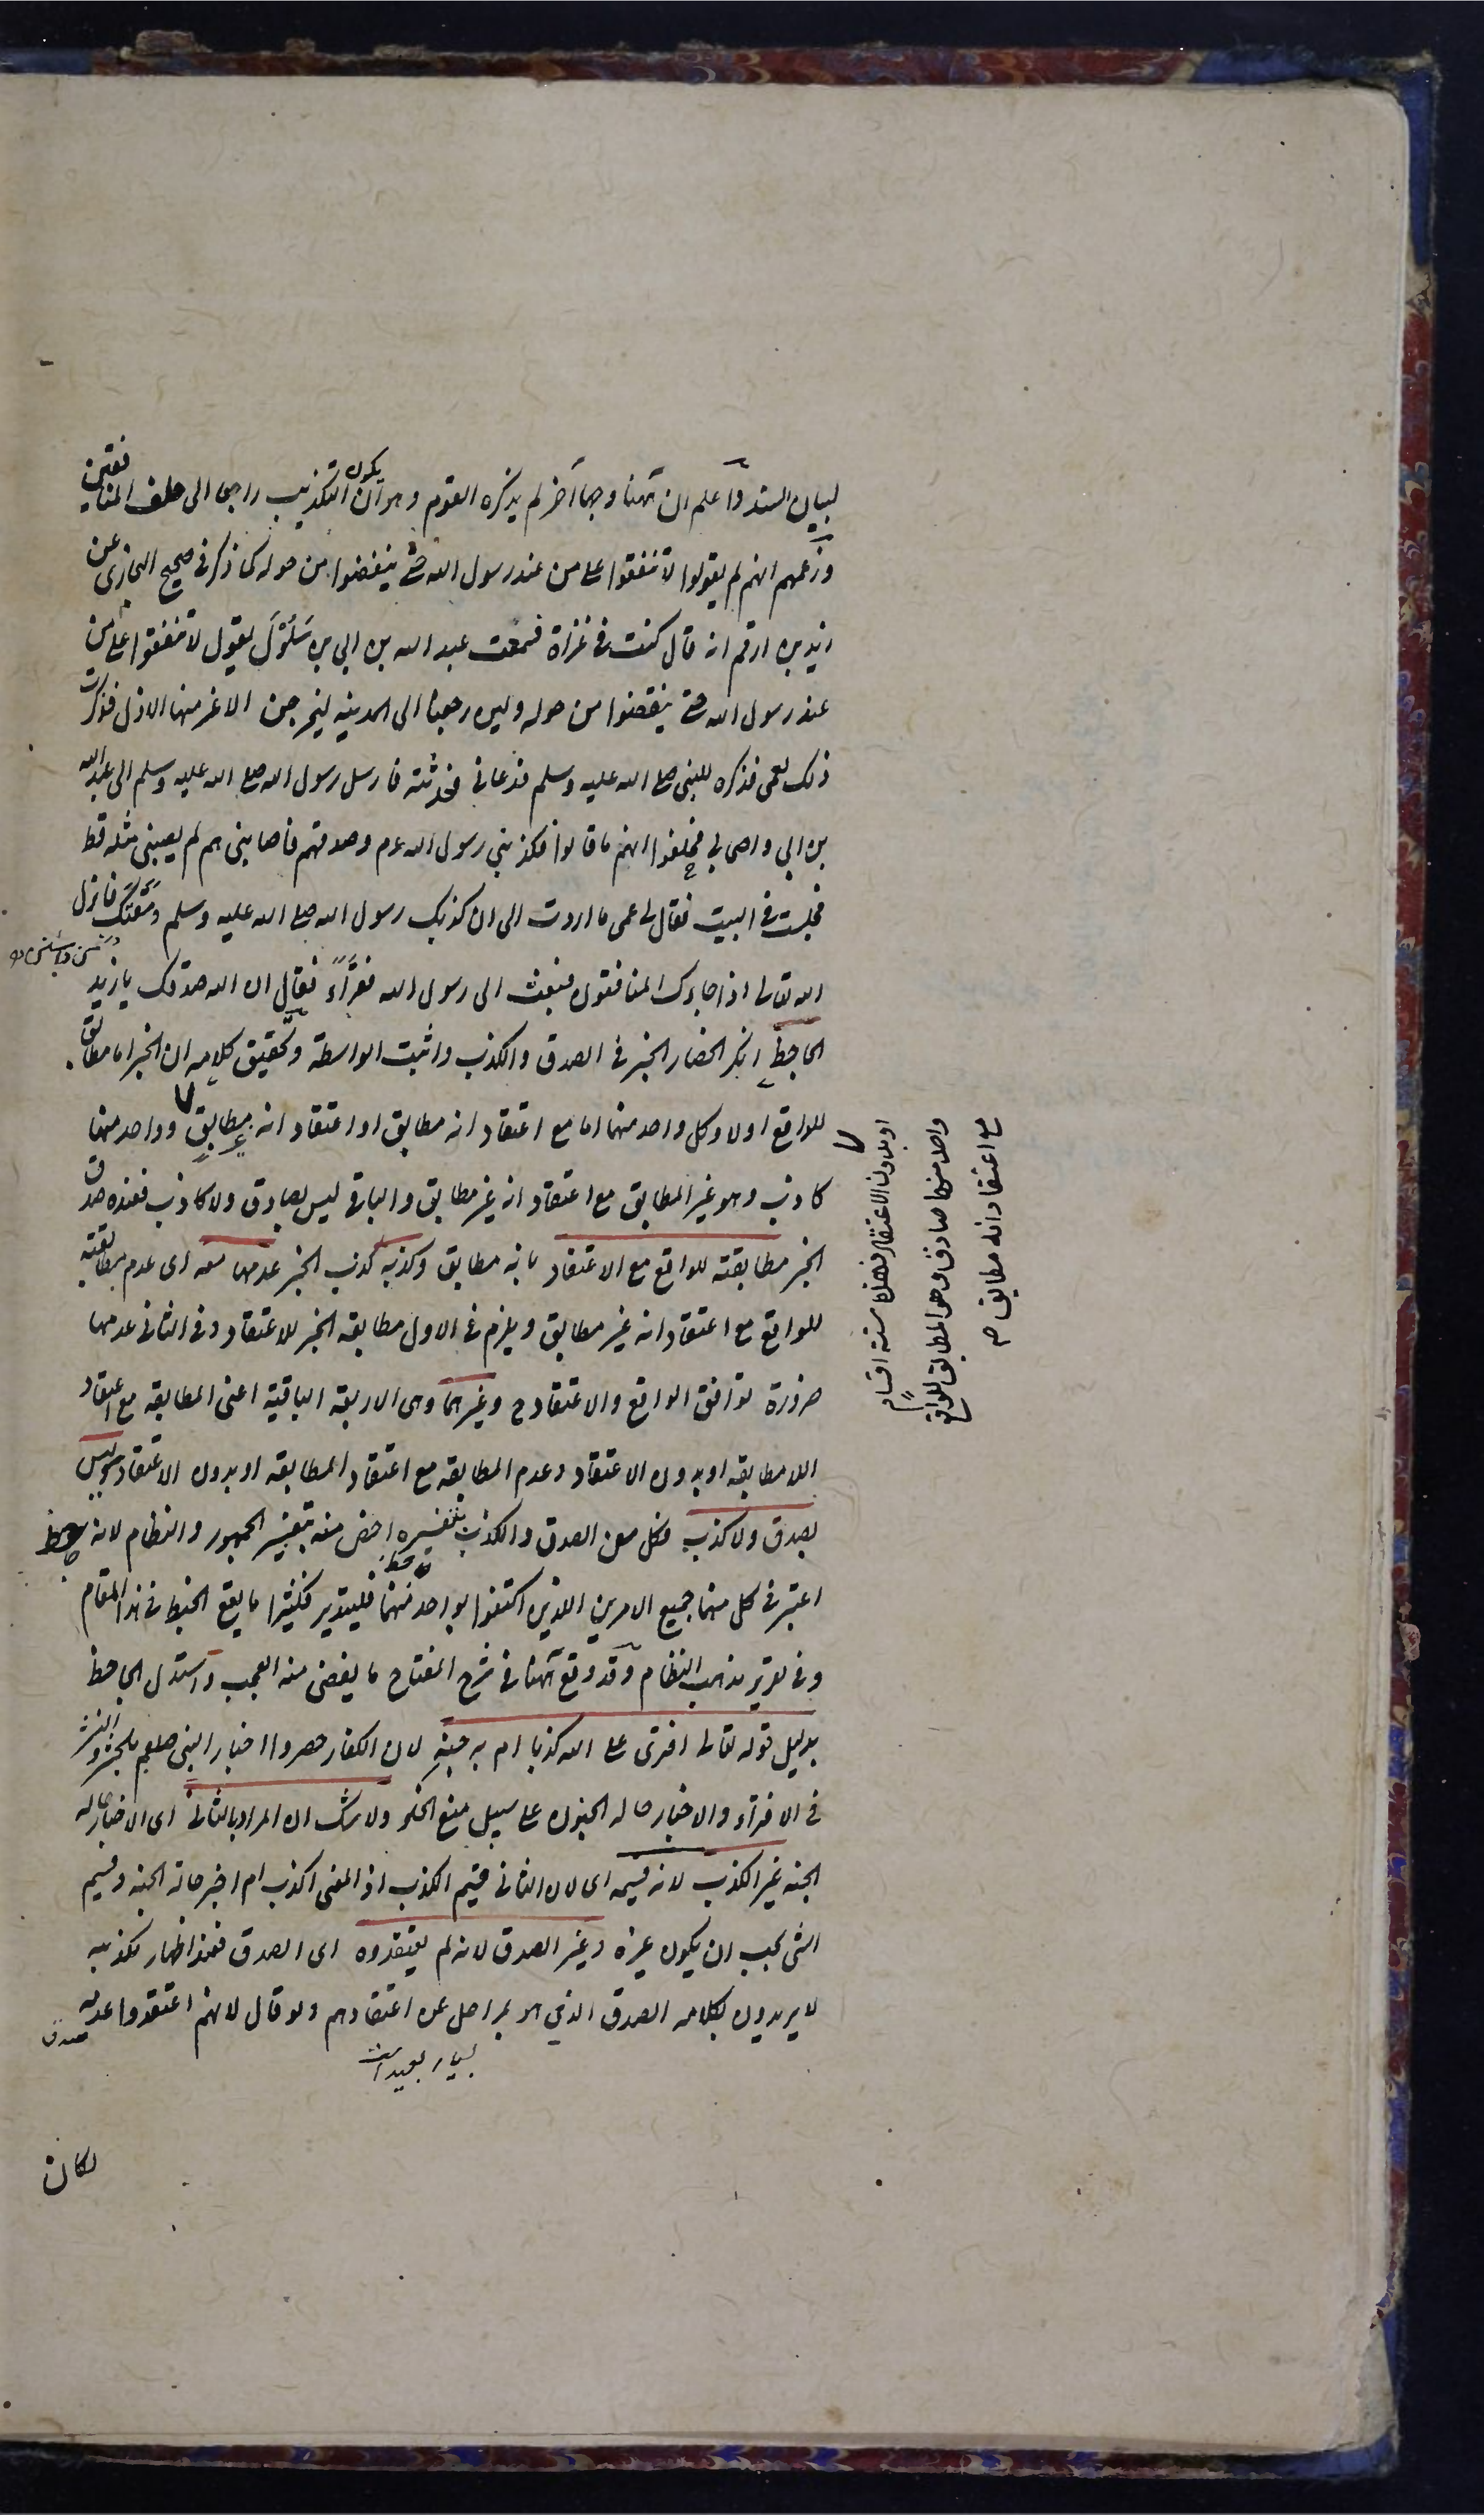 لبيان السند واعلم ان ههنا وجها آخر لم يذكره القوم وهو ان يكون التكذيب راجعا الى حلف المنافقين
وزعمهم انهم لم يقولوا لا تنفقوا على من عند رسول الله حتى ينفضوا من حوله كما ذكر في صحيح البخارى عن
زيد بن ارقم انه قال كنت في غزاة فسمعت عبد الله بن ابي بن سَلُوْلَ يقول لا تنفقوا على من
عند رسول الله حتى ينفضوا من حوله ولئن رجعنا الى المدينه ليخرجن الاعز منها الاذل فذكرت
ذلك لعمى فذكره للنبى صلى الله عليه وسلم فدعانى فحدثته فارسل رسول الله صلى الله عليه وسلم الى عبد الله
بن ابي واصحابه فحلفوا انهم ما قالوا فكذبنى رسول الله عم وصدقهم فاصابنى هم لم يصبنى مثله قط
فجلست في البيت فقال لى عمى ما اردت الى ان كذبك رسول الله صلى الله عليه وسلم ومَقَتَكَ فانزل
الله تعالى اذا جاءك المنافقون فبعث الى رسول الله فقرأ فقال ان الله صدقك يا زيد
الجاحظ انكر انحصار الخبر في الصدق والكذب واثبت الواسطة وتحقيق كلامه ان الخبر اما مطابق
للواقع اولا وكل واحد منهما اما مع اعتقاد انه مطابق او اعتقاد انه غير مطابق وواحد منهما
او بدون الاعتقاد فهذه ستة اقسام
واحد منها صادق وهو المطابق للواقع
مع اعتقاد انه مطابق صح
كاذب وهو غير المطابق مع اعتقاد انه غير مطابق والباقى ليس بصادق ولا كاذب فعنده صدق
الخبر مطابقته للواقع مع الاعتقاد بانه مطابق وكذبه كذب الخبر عدمها معه اى عدم مطابقته
للواقع مع اعتقاد انه غير مطابق ويلزم في الاول مطابقه الخبر للاعتقاد وفى الثانى عدمها
ضرورة توافق الواقع والاعتقاد ح وغيرهما وهى الاربعة الباقية اعنى المطابقه مع اعتقاد
اللامطابقه او بدون الاعتقاد وعدم المطابقه مع اعتقاد المطابقه او بدون الاعتقاد ليس
بصدق ولا كذب فكل من الصدق والكذب بتفسيره اخص منه بتفسير الجمهور والنظام لانه
اعتبر في كل منهما جميع الامرين اللذين اكتفوا بواحد منهما فليتدبر فكثيرا ما يقع الخبط في هذا المقام
وفى تقرير مذهب النظام وقد وقع ههنا في شرح المفتاح ما يقضى منه العجب واستدل الجاحظ
بدليل قوله تعالى افترى على الله كذبا ام به جنة لان الكفار حصروا اخبار النبى صلعم بالحشر والنشر
في الافتراء والاخبار حاله الجنون على سبيل منع الخلو ولا شك ان المراد بالثانى اى الاخبار حاله
الجنه غير الكذب لانه قسيمه اى لان الثانى قسيم الكذب اذ المعنى اكذب ام اخبر حالة الجنه وقسيم
الشئ يجب ان يكون غيره وغير الصدق لانه لم يعتقدوه اى الصدق فعند اظهار تكذيبه
لا يريدون بكلامه الصدق الذى هو بمراحل عن اعتقادهم ولو قال لانهم اعتقدوا عدم صدقه
بسيار بعيد است
لكان